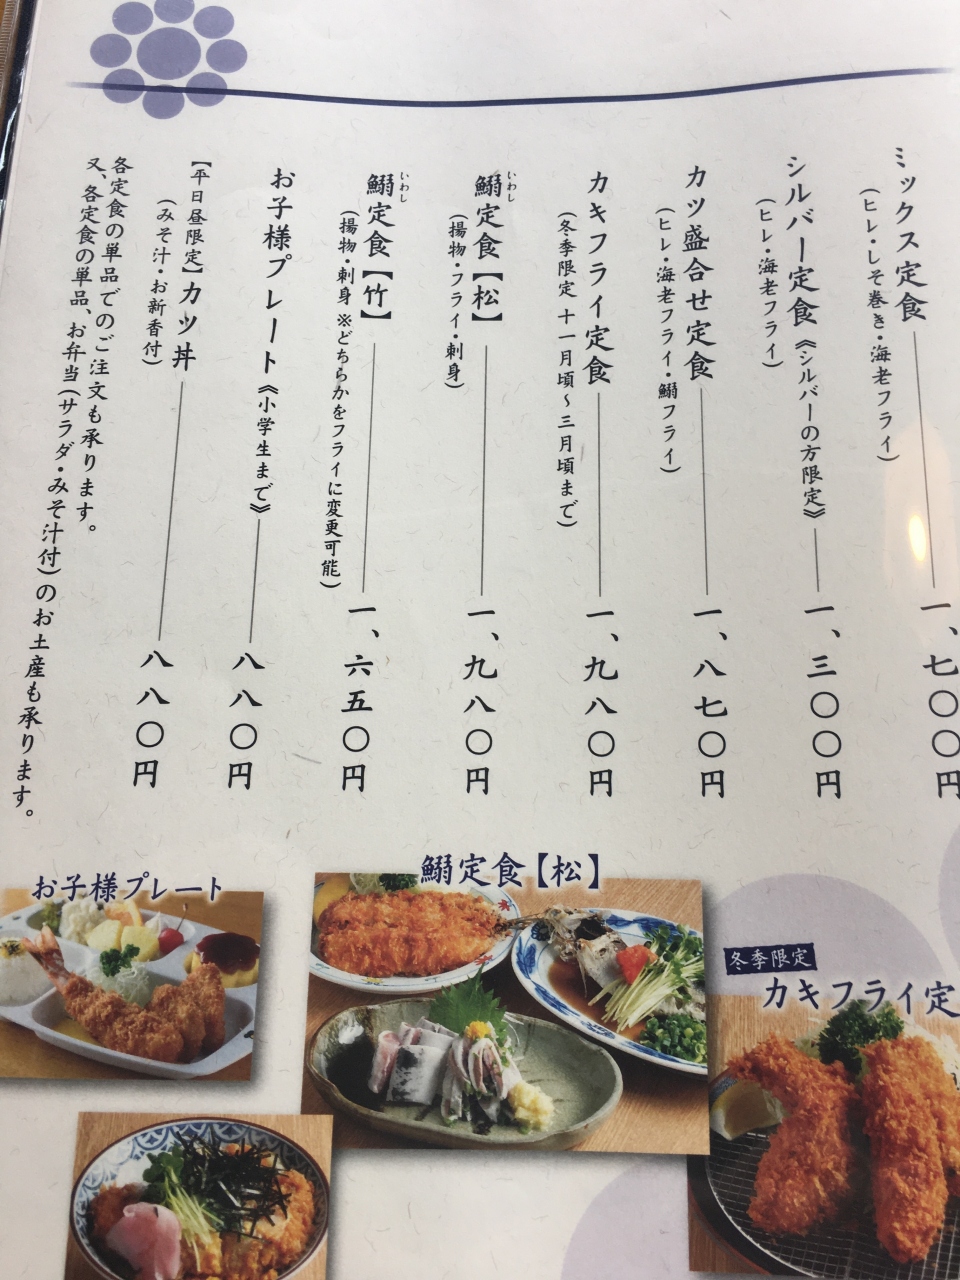 ミックス定食
(ヒレ・しそ巻き・海老フライ)
一、七〇〇円
シルバー定食《シルバーの方限定》
(ヒレ・海老フライ)
一、三〇〇円
カツ盛合せ定食
(ヒレ・海老フライ・鰯フライ)
一、八七〇円
カキフライ定食
(冬季限定 十一月頃〜三月頃まで)
一、九八〇円
いわし
鰯定食【松】
(揚物・フライ・刺身)
一、九八〇円
いわし
鰯定食【竹】
(揚物・刺身 ※どちらかをフライに変更可能)
一、六五〇円
お子様プレート《小学生まで》
八八〇円
【平日昼限定】カツ丼
(みそ汁・お新香付)
八八〇円
各定食の単品でのご注文も承ります。
又、各定食の単品、お弁当(サラダ・みそ汁付)のお土産も承ります。
お子様プレート
鰯定食【松】
冬季限定
カキフライ定